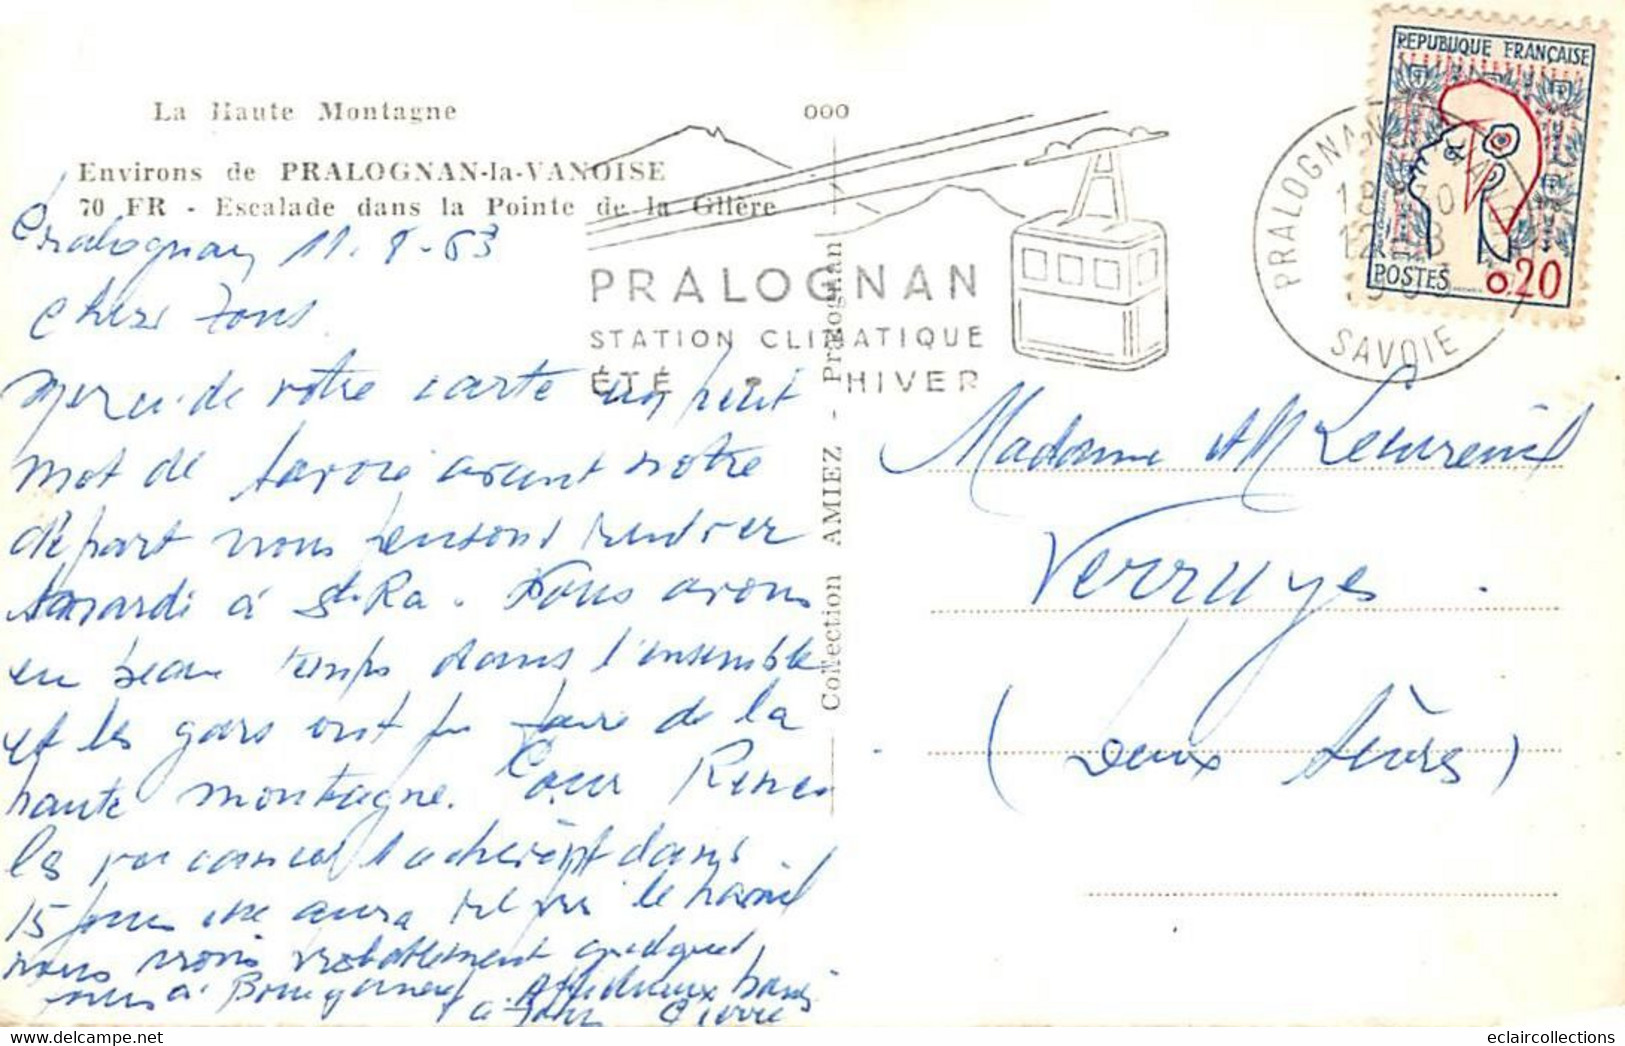 La Haute Montagne
Environs de PRALOGNAN-la-VANOISE
70 FR - Escalade dans la Pointe de la Glière
Pralognan 11-8-63
Chers Tous
Merci de votre carte un petit
mot de Savoie avant notre
départ nous pensons rentrer
mardi à St Ra. Nous avons
eu beau temps dans l'ensemble
et les gars ont pu faire de la
haute montagne. Pour
les vacances s'achèvent dans
15 jours aura repris le travail
nous irons probablement quelques
jours à Affectueux baisers
à Tous Pierre
000
PRALOGNAN
STATION CLIMATIQUE
ÉTÉ - HIVER
Collection AMIEZ - Pralognan
REPUBLIQUE FRANÇAISE
POSTES 0,20
PRALOGNAN
18H30
12-8
SAVOIE
Madame et M
Verruyes
(Deux Sèvres)
eclaircollections